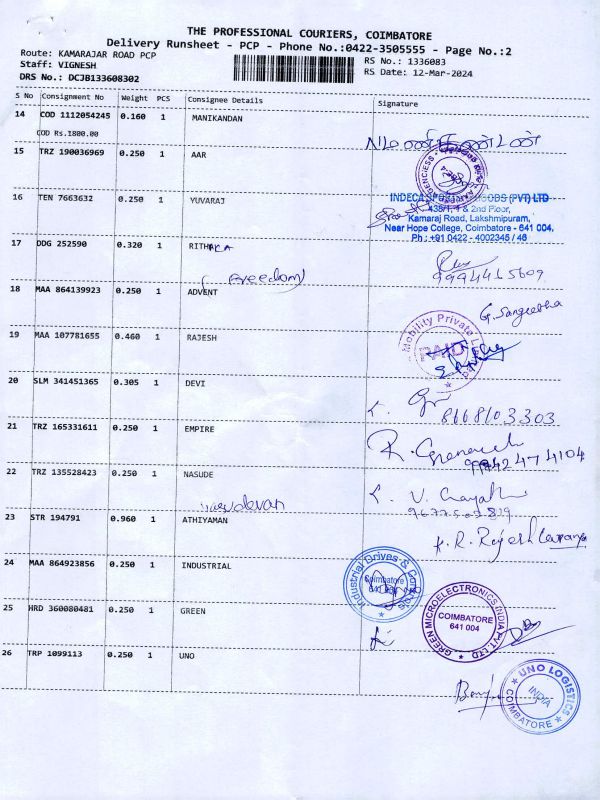 THE PROFESSIONAL COURIERS, COIMBATORE
Delivery Runsheet - PCP - Phone No.:0422-3505555 - Page No.:2
Route: KAMARAJAR ROAD PCP
Staff: VIGNESH
DRS No.: DCJB133608302
RS No.: 1336083
RS Date: 12-Mar-2024
S No Consignment No Weight PCS Consignee Details Signature
14 COD 1112054245 0.160 1 MANIKANDAN
COD Rs.1800.00
மணிகண்டன்
15 TRZ 190036969 0.250 1 AAR
16 TEN 7663632 0.250 1 YUVARAJ
INDECA (PVT) LTD
435/1, 1 & 2nd Floor,
Kamaraj Road, Lakshmipuram,
Near Hope College, Coimbatore - 641 004.
Ph : +91 0422 - 4002345 / 46
17 DDG 252590 0.320 1 RITHIKA
9994415609
(Freedom)
18 MAA 864139923 0.250 1 ADVENT
G. Sangeetha
19 MAA 107781655 0.460 1 RAJESH
Mobility Private
20 SLM 341451365 0.305 1 DEVI
8668103303
21 TRZ 165331611 0.250 1 EMPIRE
R. Ganesh
9942474104
22 TRZ 135528423 0.250 1 NASUDE
vasudevan
V.
23 STR 194791 0.960 1 ATHIYAMAN
R. Rajesh
24 MAA 864923856 0.250 1 INDUSTRIAL
Industrial Drives & Controls
Coimbatore
25 HRD 360080481 0.250 1 GREEN
GREEN MICROELECTRONICS INDIA PVT LTD
COIMBATORE
641 004
26 TRP 1099113 0.250 1 UNO
UNO LOGISTICS
INDIA
COIMBATORE